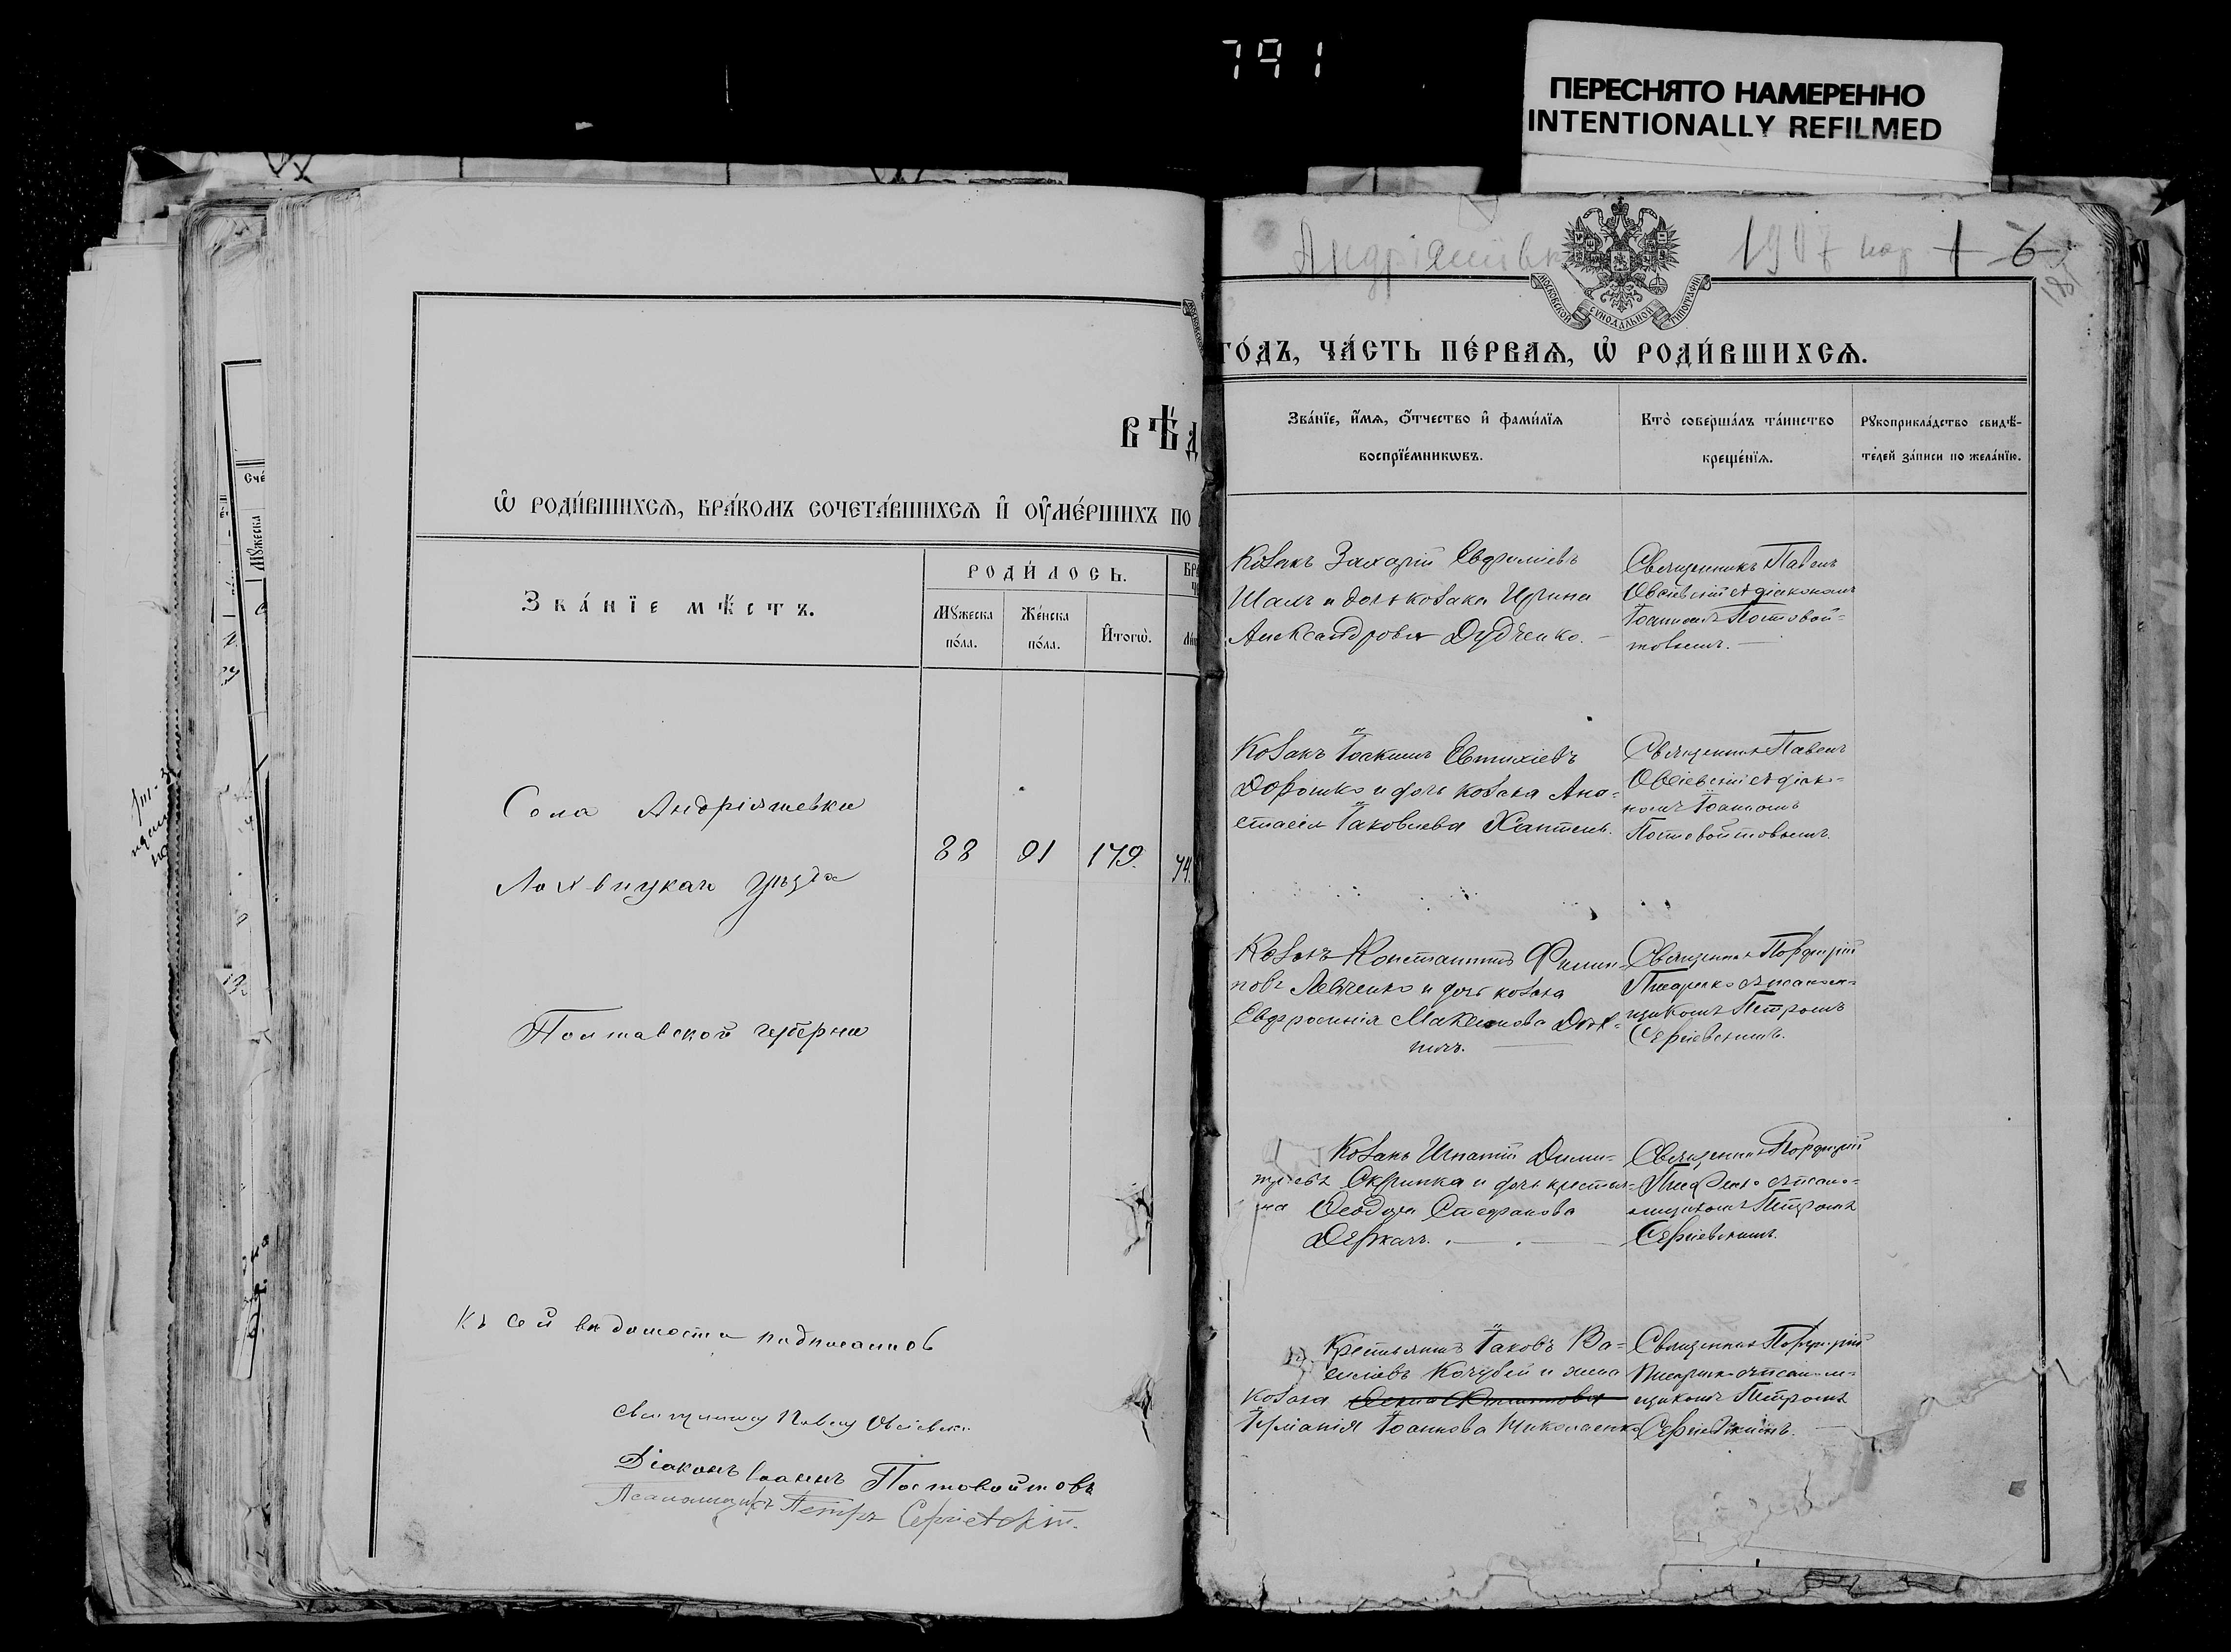 791
ПЕРЕСНЯТО НАМЕРЕННО
INTENTIONALLY REFILMED
ВѢД
Ѡ РОДИ́ВШИХСѦ, БРА́КОМЪ СОЧЕТА́ВШИХСѦ И҆ ОУ҆МЕ́РШИХЪ ПО
Зва́нїе мѣ́стъ.
РОДИ́ЛОСЬ.
Мꙋ́жеска по́ла.
Же́нска по́ла.
И҆тогѡ̀.
Села Андріяшевки
88 91 179. 74.
Лохвицкаго уѣзда
Полтавской губерніи
Къ сей вѣдомости
Священникъ Павелъ Овсіевскій
Діаконъ Іоаннъ Постовойтовъ
Псаломщикъ Петръ Сергіевскій.
Андріяшівка 1907 нар 1-6
МОСКОВСКОЙ СѴНОДАЛЬНОЙ ТИПОГРАФІИ
ГО́ДЪ, ЧА́СТЬ ПЕ́РВАѦ, Ѡ РОДИ́ВШИХСѦ.
Зва́нїе, и҆́мѧ, ѻ҆́тчество и҆ фами́лїѧ
воспрїе́мникѡвъ.
Кто̀ соверша́лъ та́инство
креще́нїѧ.
Рꙋкоприкла́дство свидѣ́-
телей за́писи по жела́нїю.
Козакъ Захарій Евфиміевъ
Шамъ и дочь козака Ирина
Александрова Дудченко.
Священникъ Павелъ
Овсіевскій съ діакономъ
Іоанномъ Постовой-
товымъ.
Козакъ Іоакимъ Евтихіевъ
Дорошко и дочь козака Ана-
стасія Іаковлева Хаптенъ.
Священник Павелъ
Овсіевскій съ діако-
номъ Іоанномъ
Постовойтовымъ.
Козакъ Константинъ Филип-
повъ Левченко и дочь козака
Евфросинія Максимова
Священник Порфирій
Писаренко съ псалом-
щикомъ Петромъ
Сергіевскимъ.
Козакъ Игнатій Дими-
тріевъ Скрипка и дочь крестья-
на Ѳеодора Стефанова
Деркачъ.
Священник Порфирій
Писаренко съ псало-
мщикомъ Петромъ
Сергіевскимъ.
Крестьянинъ Іаковъ Ва-
силіевъ Кочубей и жена
козака
Іерманія Іоаннова Николаенко
Священник Порфирій
Писаренко съ псалом-
щикомъ Петромъ
Сергіевскимъ.